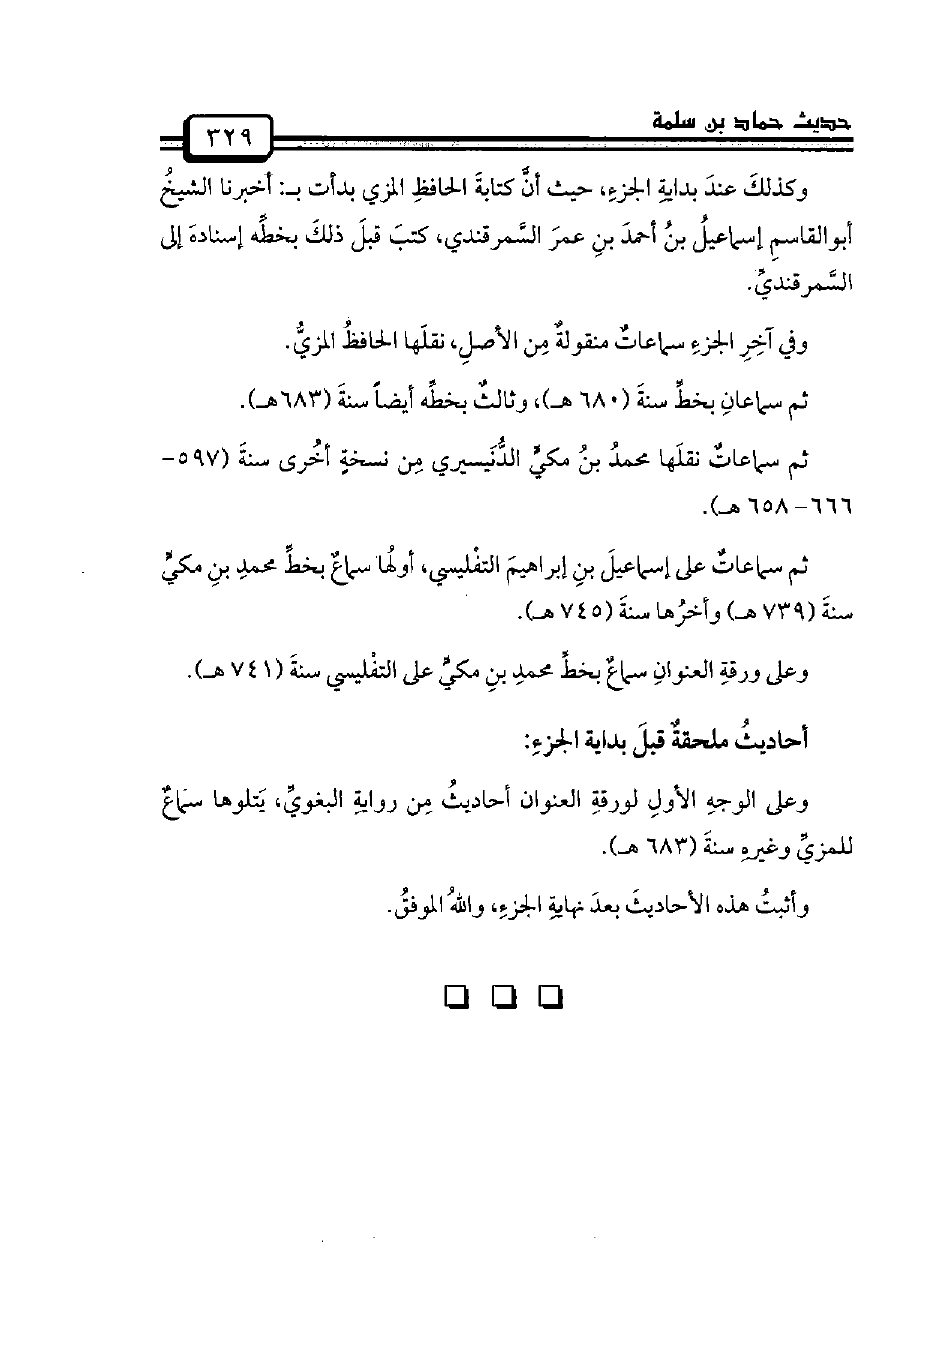 حديث حماد بن سلمة
٣٢٩
وكذلكَ عندَ بدايةِ الجزءِ، حيث أنَّ كتابةَ الحافظِ المزي بدأت بـ: أخبرنا الشيخُ
أبو القاسمِ إسماعيلُ بنُ أحمدَ بنِ عمرَ السَّمرقندي، كتبَ قبلَ ذلكَ بخطِّه إسنادهَ إلى
السَّمرقنديِّ.
وفي آخِرِ الجزءِ سماعاتٌ منقولةٌ مِن الأصلِ، نقلَها الحافظُ المزيُّ.
ثم سماعانِ بخطِّ سنةَ (٦٨٠ هـ)، وثالثٌ بخطِّه أيضاً سنةَ (٦٨٣هـ).
ثم سماعاتٌ نقلَها محمدُ بنُ مكيٍّ الدُّنَيسيري مِن نسخةٍ أخُرى سنةَ (٥٩٧-
٦٥٨-٦٦٦ هـ).
ثم سماعاتٌ على إسماعيلَ بنِ إبراهيمَ التفْليسي، أولُها سماعٌ بخطِّ محمدِ بنِ مكيٍّ
سنةَ (٧٣٩ هـ) وآخرُها سنةَ (٧٤٥ هـ).
وعلى ورقةِ العنوانِ سماعٌ بخطِّ محمدِ بنِ مكيٍّ على التفْليسي سنةَ (٧٤١ هـ).
أحاديثُ ملحقةٌ قبلَ بداية الجزءِ:
وعلى الوجهِ الأولِ لورقةِ العنوان أحاديثُ مِن روايةِ البغويِّ، يَتلوها سَماعٌ
للمزيِّ وغيرِه سنةَ (٦٨٣ هـ).
وأثبتُ هذه الأحاديثَ بعدَ نهايةِ الجزءِ، واللهُ الموفقُ.